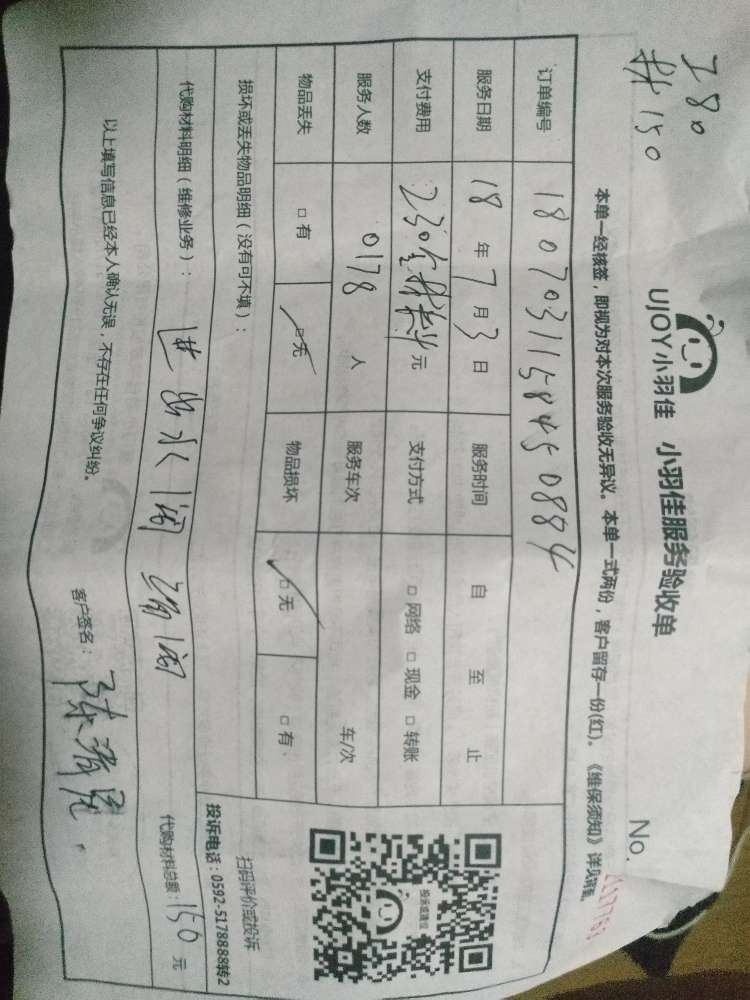 工80
材150
UJOY小羽佳 小羽佳服务验收单
No.
本单一经核签，即视为对本次服务验收无异议。本单一式两份，客户留存一份(红)。《维保须知》详见背面。
订单编号 18070311584508884
服务日期 18 年 7 月 3 日 服务时间 自 至 止
支付费用 230含材料 元 支付方式 □ 网络 □ 现金 □ 转账
服务人数 0178 人 服务车次 车/次
物品丢失 □ 有 □ 无 物品损坏 □ 无 □ 有
损坏或丢失物品明细（没有可不填）：
投诉或建议
扫码评价或投诉
投诉电话：0592-5178888转2
代购材料明细（维修业务）： 进出水阀 代购材料总额：150 元
以上填写信息已经本人确认无误，不存在任何争议纠纷。
客户签名：